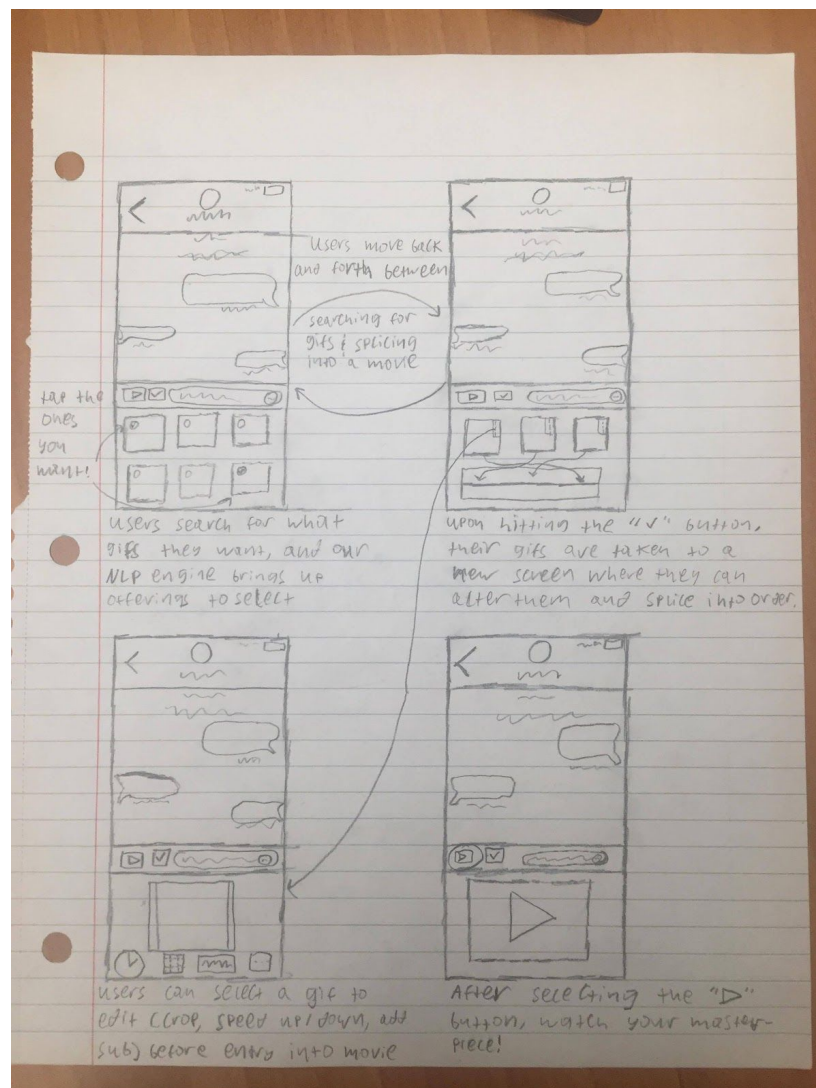 Users move back
and forth between
searching for
gifs & splicing
into a movie
tap the
ones
you
want!
users search for what
gifs they want, and our
NLP engine brings up
offerings to select
upon hitting the "✓" button,
their gifs are taken to a
new screen where they can
alter them and splice into order.
users can select a gif to
edit (crop, speed up/down, add
sub) before entry into movie
After selecting the "▷"
button, watch your master-
piece!